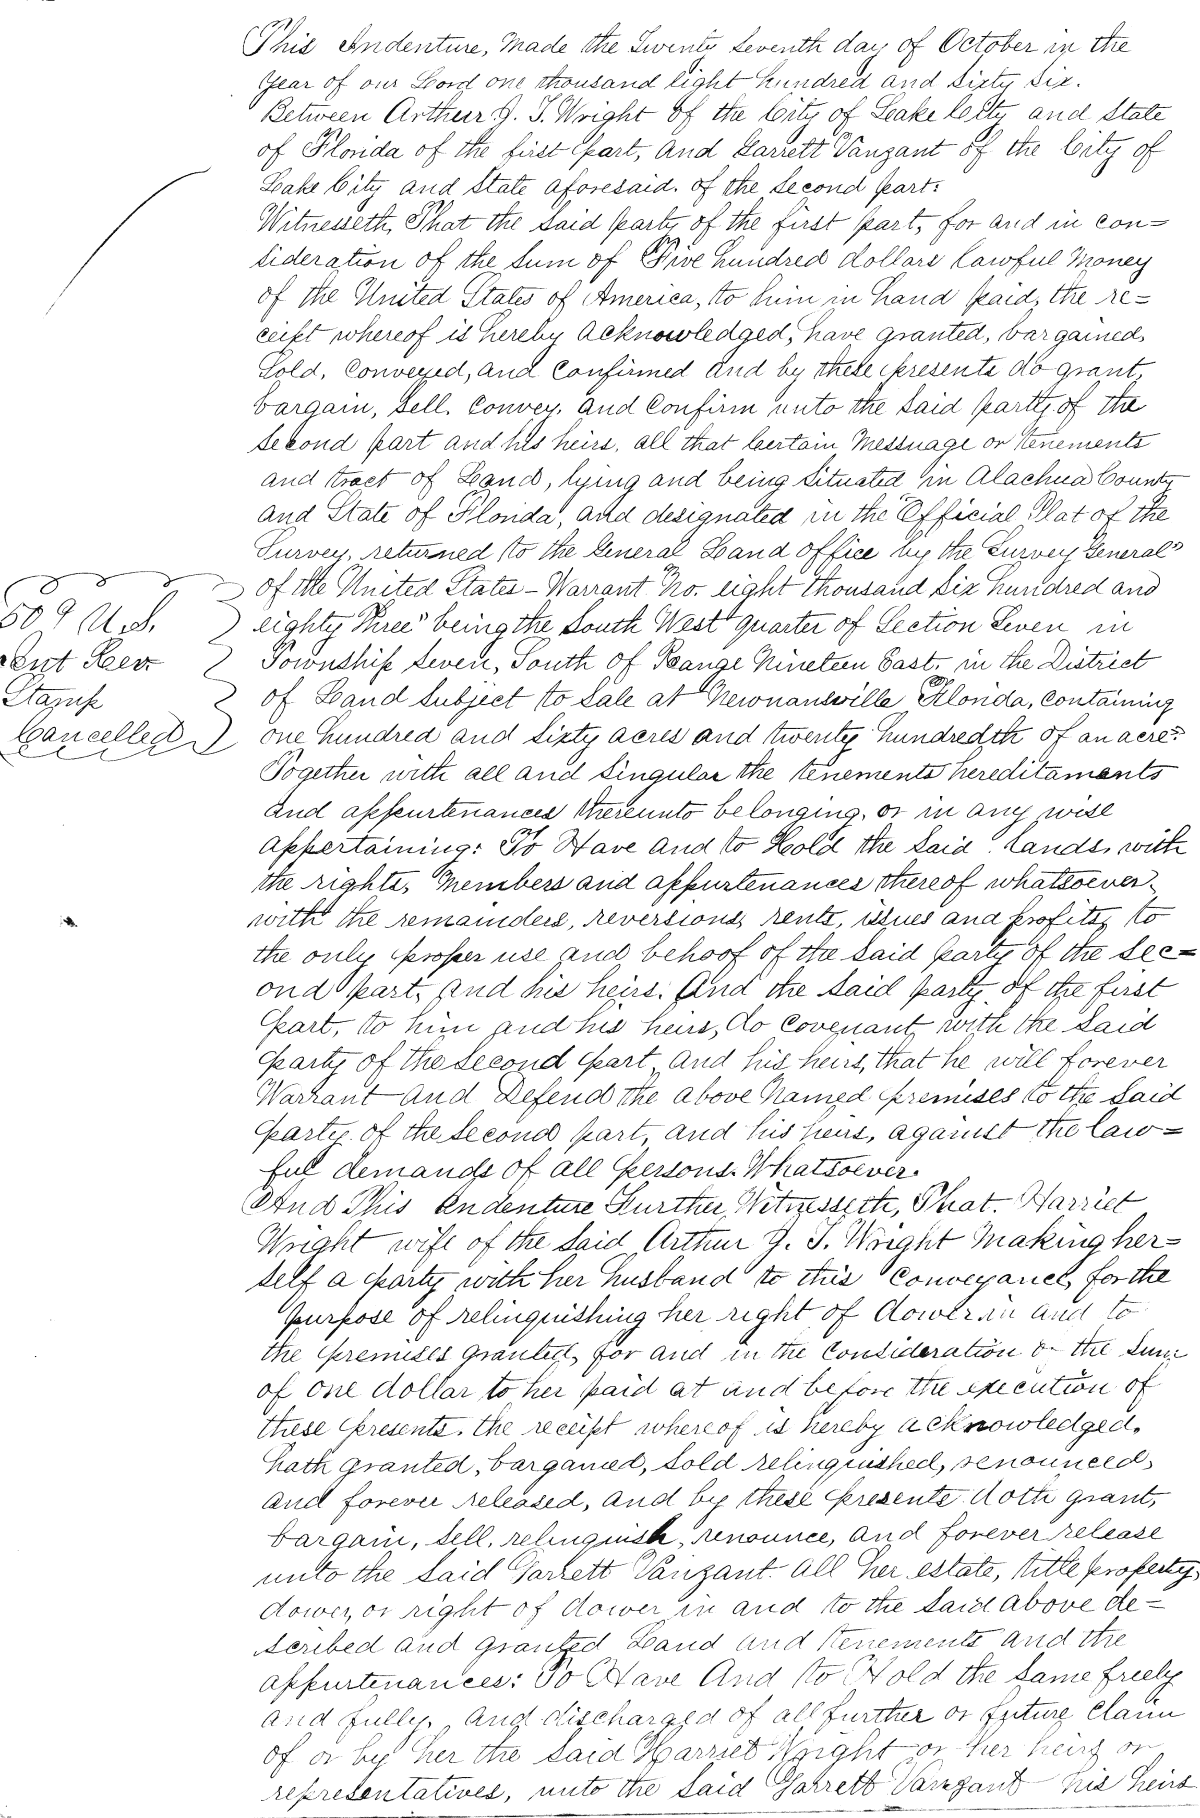 This Indenture, Made the Twenty Seventh day of October in the
Year of our Lord one thousand Eight hundred and Sixty Six.
Between Arthur J. T. Wright of the City of Lake City and State
of Florida of the first part, and Garrett Vanzant of the City of
Lake City and State aforesaid. of the Second part:
Witnesseth, That the Said party of the first part, for and in con=
sideration of the Sum of Five hundred dollars lawful Money
of the United States of America, to him in hand paid, the re=
ceipt whereof is hereby acknowledged, have granted, bargained,
Sold, Conveyed, and Confirmed and by these presents do grant,
bargain, Sell. Convey. and Confirm unto the Said party of the
Second part and his heirs, all that Certain Messuage or tenements
and tract of Land, lying and being Situated in Alachua County
and State of Florida, and designated in the "Official Plat of the
Survey, returned to the General Land office by the Survey General"
of the United States - Warrant No. eight thousand Six hundred and
eighty three" being the South West quarter of Section Seven in
Township Seven, South of Range Nineteen East, in the District
of Land Subject to Sale at Newnansville Florida, Containing
one hundred and Sixty acres and twenty hundredth of an acre:
50¢ U.S.
Rev
Stamp
Cancelled
Together with all and Singular the tenements hereditaments
and appurtenances thereunto belonging, or in any wise
appertaining: To Have and to Hold the Said lands, with
the rights, Members and appurtenances thereof whatsoever,
with the remainders, reversions, rents, issues and profits, to
the only proper use and behoof of the Said party of the Sec=
ond part, and his heirs. And the Said party of the first
part, to him and his heirs, do Covenant with the Said
party of the Second part and his heirs, that he will forever
Warrant and Defend the above Named premises to the Said
party of the Second part, and his heirs, against the law=
ful demands of all persons. Whatsoever.
And This Indenture Further Witnesseth, That. Harriet
Wright wife of the Said Arthur J. T. Wright Making her=
self a party with her husband to this Conveyance, for the
purpose of relinquishing her right of dower in and to
the premises granted, for and in the Consideration of the Sum
of one dollar to her paid at and before the execution of
these presents, the receipt whereof is hereby acknowledged.
hath granted, bargained, Sold relinquished, renounced,
and forever released, and by these presents doth grant,
bargain, Sell, relinquish, renounce, and forever release
unto the Said Garrett Vanzant. all her estate, title property,
dower, or right of dower in and to the Said above de=
scribed and granted Land and tenements and the
appurtenances: To Have And to Hold the Same freely
and fully, and discharged of all further or future Claim
of or by her the Said Harriet Wright or her heirs or
representatives, unto the Said Garrett Vanzant his heirs